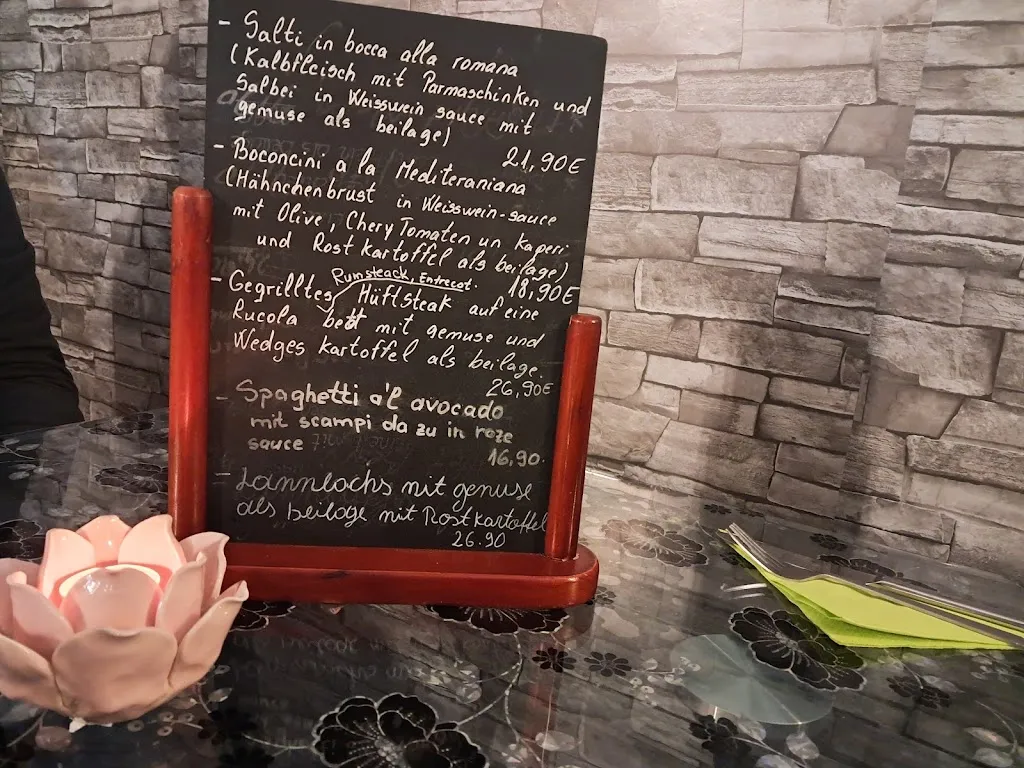 - Salti in bocca alla romana
(Kalbfleisch mit Parmaschinken und
Salbei in Weisswein sauce mit
gemuse als beilage)
21,90€
- Boconcini a la Mediteraniana
(Hähnchenbrust in Weisswein-sauce
mit Olive, Chery Tomaten un Kaperi
und Rost kartoffel als beilage)
18,90€
Rumsteack, Entrecot.
- Gegrilltes Hüftsteak auf eine
Rucola bett mit gemuse und
Wedges kartoffel als beilage.
26,90€
- Spaghetti a'l avocado
mit scampi da zu in roze
sauce
16,90.
- Lannlachs mit gemuse
als beilage mit Rostkartoffel
26.90